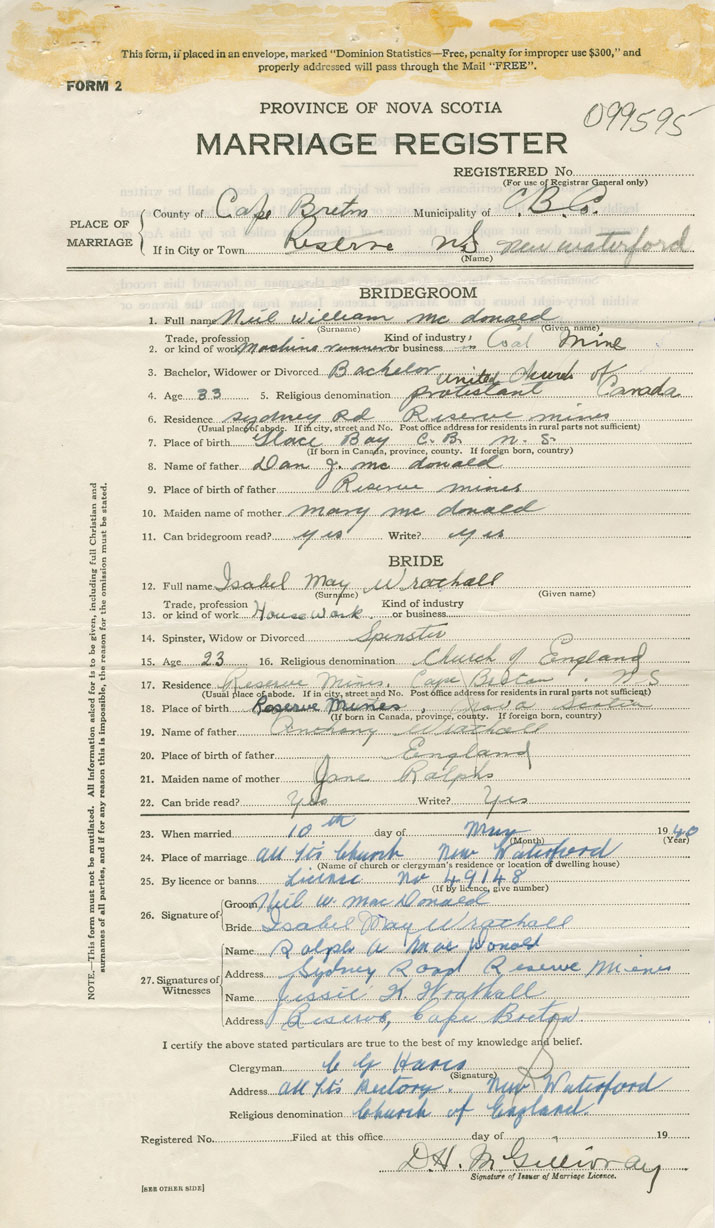 This form, if placed in an envelope, marked "Dominion Statistics—Free, penalty for improper use $300," and
properly addressed will pass through the Mail "FREE".
FORM 2
PROVINCE OF NOVA SCOTIA
099595
MARRIAGE REGISTER
REGISTERED No.
(For use of Registrar General only)
PLACE OF MARRIAGE
County of Cape Breton Municipality of C. B. Co.
If in City or Town Reserve NS New Waterford
(Name)
BRIDEGROOM
1. Full name Neil William Mc donald
(Surname) (Given name)
2. Trade, profession or kind of work Machine runner Kind of industry or business " Coal Mine
3. Bachelor, Widower or Divorced Bachelor
4. Age 33 5. Religious denomination protestant United Church of Canada
6. Residence Sydney Rd Reserve mines
(Usual place of abode. If in city, street and No. Post office address for residents in rural parts not sufficient)
7. Place of birth Glace Bay C. B. N. S.
(If born in Canada, province, county. If foreign born, country)
8. Name of father Dan J. mc donald
9. Place of birth of father Reserve mines
10. Maiden name of mother mary mc donald
11. Can bridegroom read? yes Write? yes
BRIDE
12. Full name Isabel May Wrathall
(Surname) (Given name)
13. Trade, profession or kind of work House Work. Kind of industry or business
14. Spinster, Widow or Divorced Spinster
15. Age 23 16. Religious denomination Church of England
17. Residence Reserve Mines. Cape Breton. N S
(Usual place of abode. If in city, street and No. Post office address for residents in rural parts not sufficient)
18. Place of birth Reserve Mines, Nova Scotia
(If born in Canada, province, county. If foreign born, country)
19. Name of father Anthony Wrathall
20. Place of birth of father England
21. Maiden name of mother Jane Ralphs
22. Can bride read? Yes Write? Yes
23. When married 10th day of May 1940
(Month) (Year)
24. Place of marriage All Sts Church New Waterford
(Name of church or clergyman's residence or location of dwelling house)
25. By licence or banns License No 49148
(If by licence, give number)
26. Signature of
Groom Neil W. MacDonald
Bride Isabel May Wrathall
27. Signatures of Witnesses
Name Ralph A MacDonald
Address Sydney Road Reserve Mines
Name Jessie K Wrathall
Address Reserve, Cape Breton
I certify the above stated particulars are true to the best of my knowledge and belief.
Clergyman C G Harris
(Signature)
Address All Sts Rectory. New Waterford
Religious denomination Church of England.
Registered No. Filed at this office day of 19
D. H. McGillivray
Signature of Issuer of Marriage Licence.
[SEE OTHER SIDE]
NOTE.—This form must not be mutilated. All Information asked for is to be given, including full Christian and
surnames of all parties, and if for any reason this is impossible, the reason for the omission must be stated.